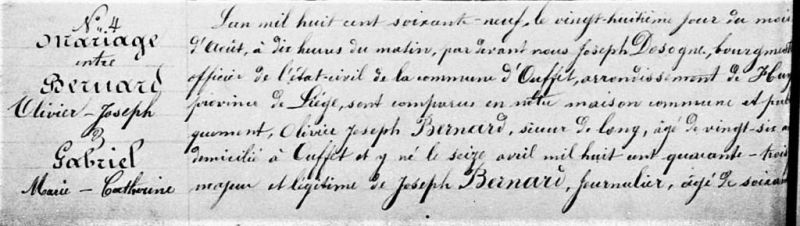 N° 4
Mariage
entre
Bernard
Olivier-Joseph
&
Gabriel
Marie-Catherine
L'an mil huit cent soixante-neuf, le vingt-huitième jour du mois
d'Août, à dix heures du matin, par devant nous Joseph Dosogne, bourgmest
officier de l'état-civil de la commune d'Ouffet, arrondissement de Huy
province de Liège, sont comparus en notre maison commune et publi
quement, Olivier Joseph Bernard, scieur de long, âgé de vingt-six a
domicilié à Ouffet et y né le seize avril mil huit cent quarante-trois
majeur et légitime de Joseph Bernard, journalier, âgé de soixan